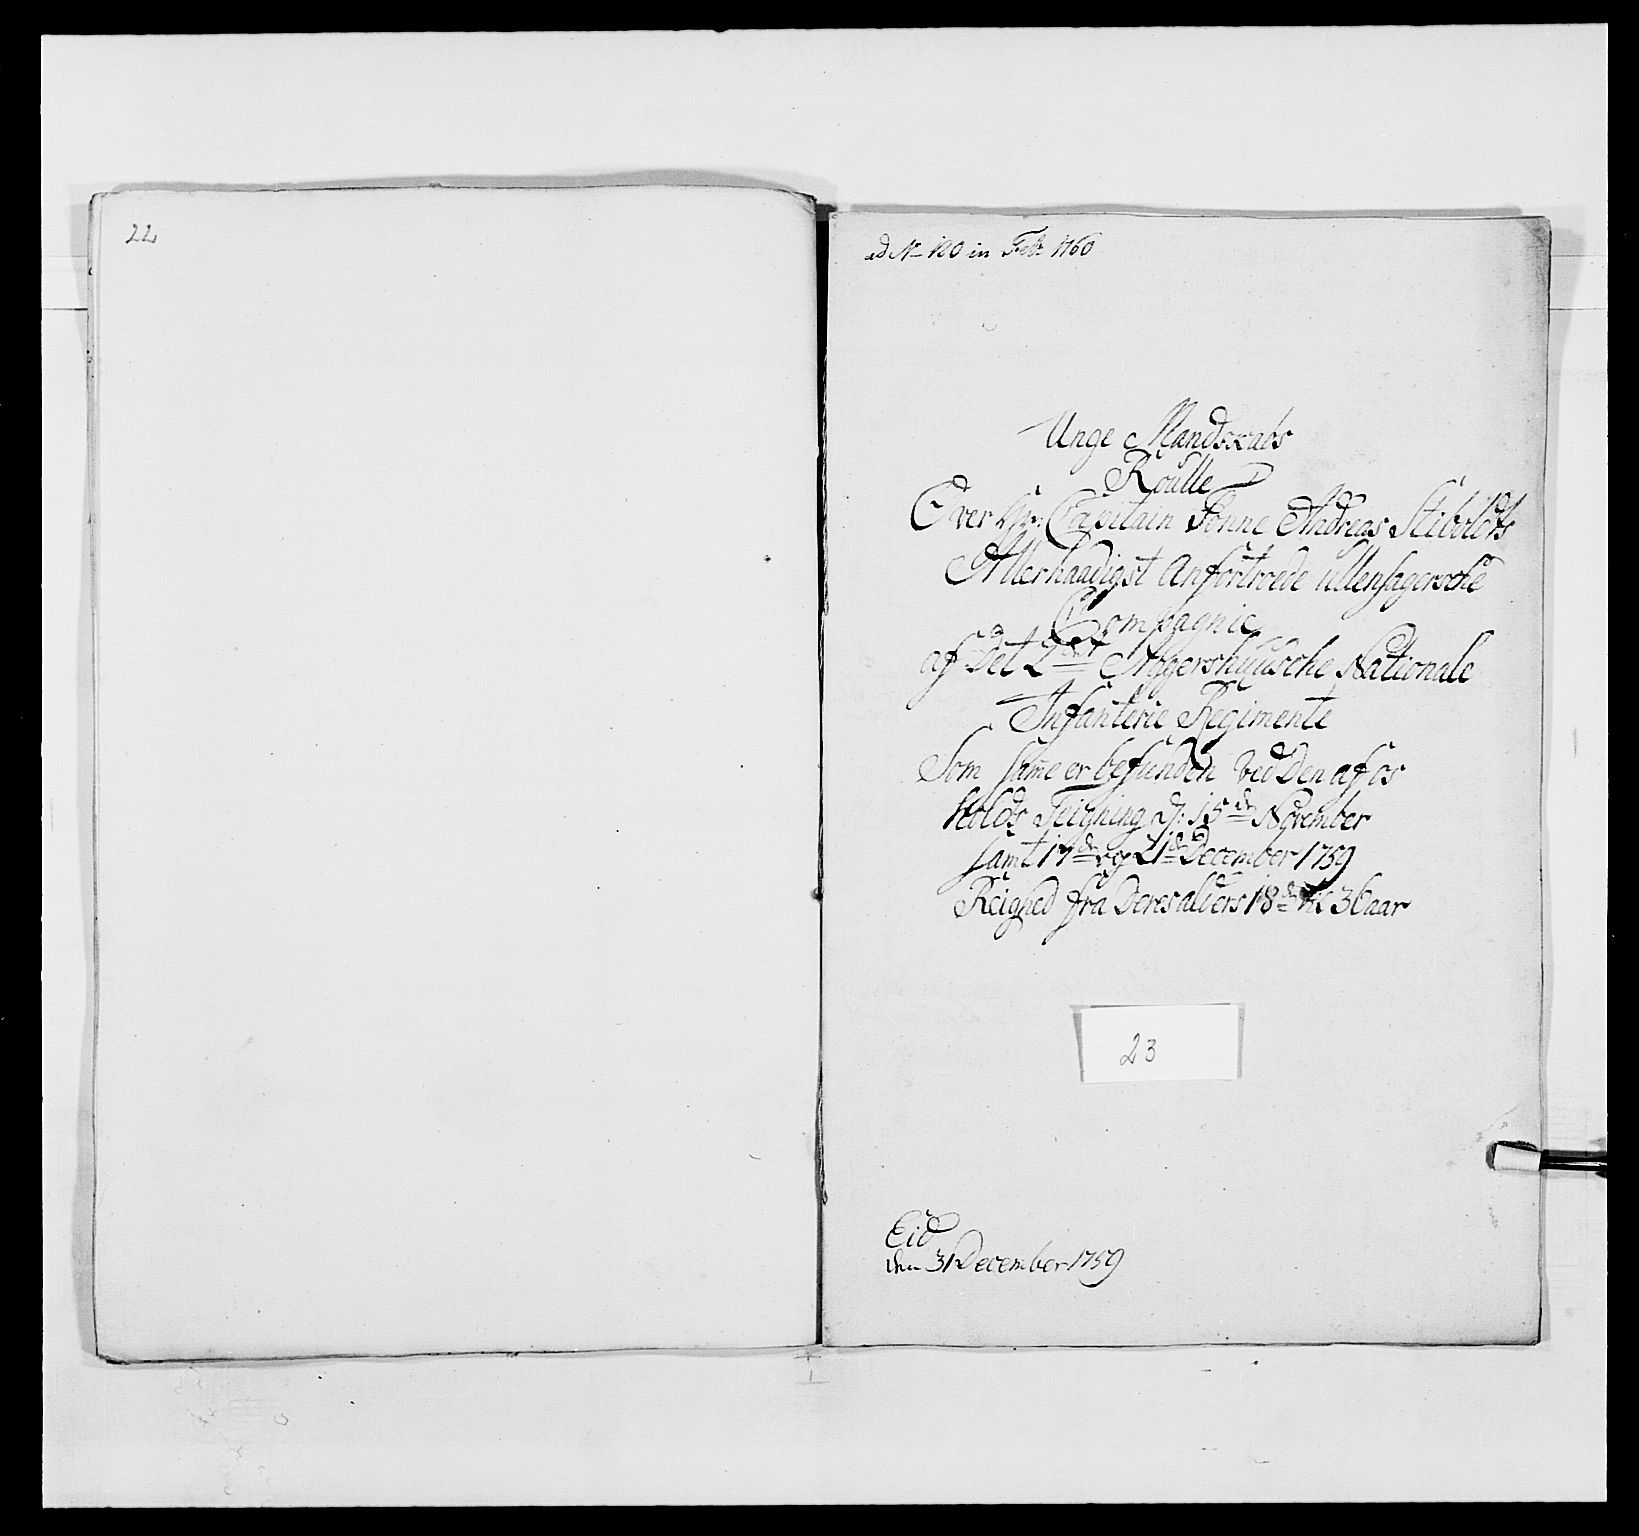 22
ad No 120 in Febr 1760
Unge Mandskabs
Roulle
Over Hr: Capitain Tonne Andreas Stibolds
Allernaadigst Anfortroede ullensagersche
Compagnie
af Det 2det Aggershuusche Nationale
Infanterie Regimente
Som same er befunden Ved Den af os
holdte Teigning d: 15de November
samt 17de og 21de December 1759
Reigned fra Deres alders 18de til 36 aar
23
Eid
den 31 December 1759